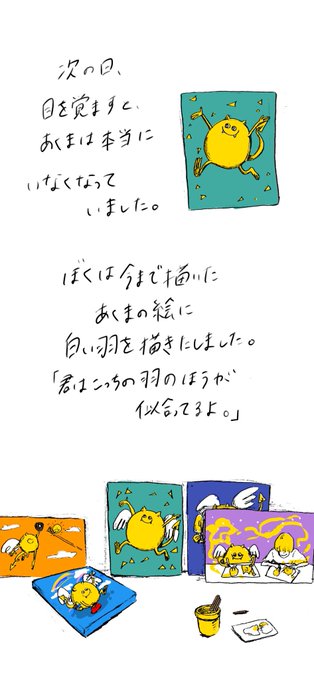 次の日、
目を覚ますと、
あくまは本当に
いなくなって
いました。
ぼくは今まで描いた
あくまの絵に
白い羽を描きたしました。
「君はこっちの羽のほうが
似合ってるよ。」